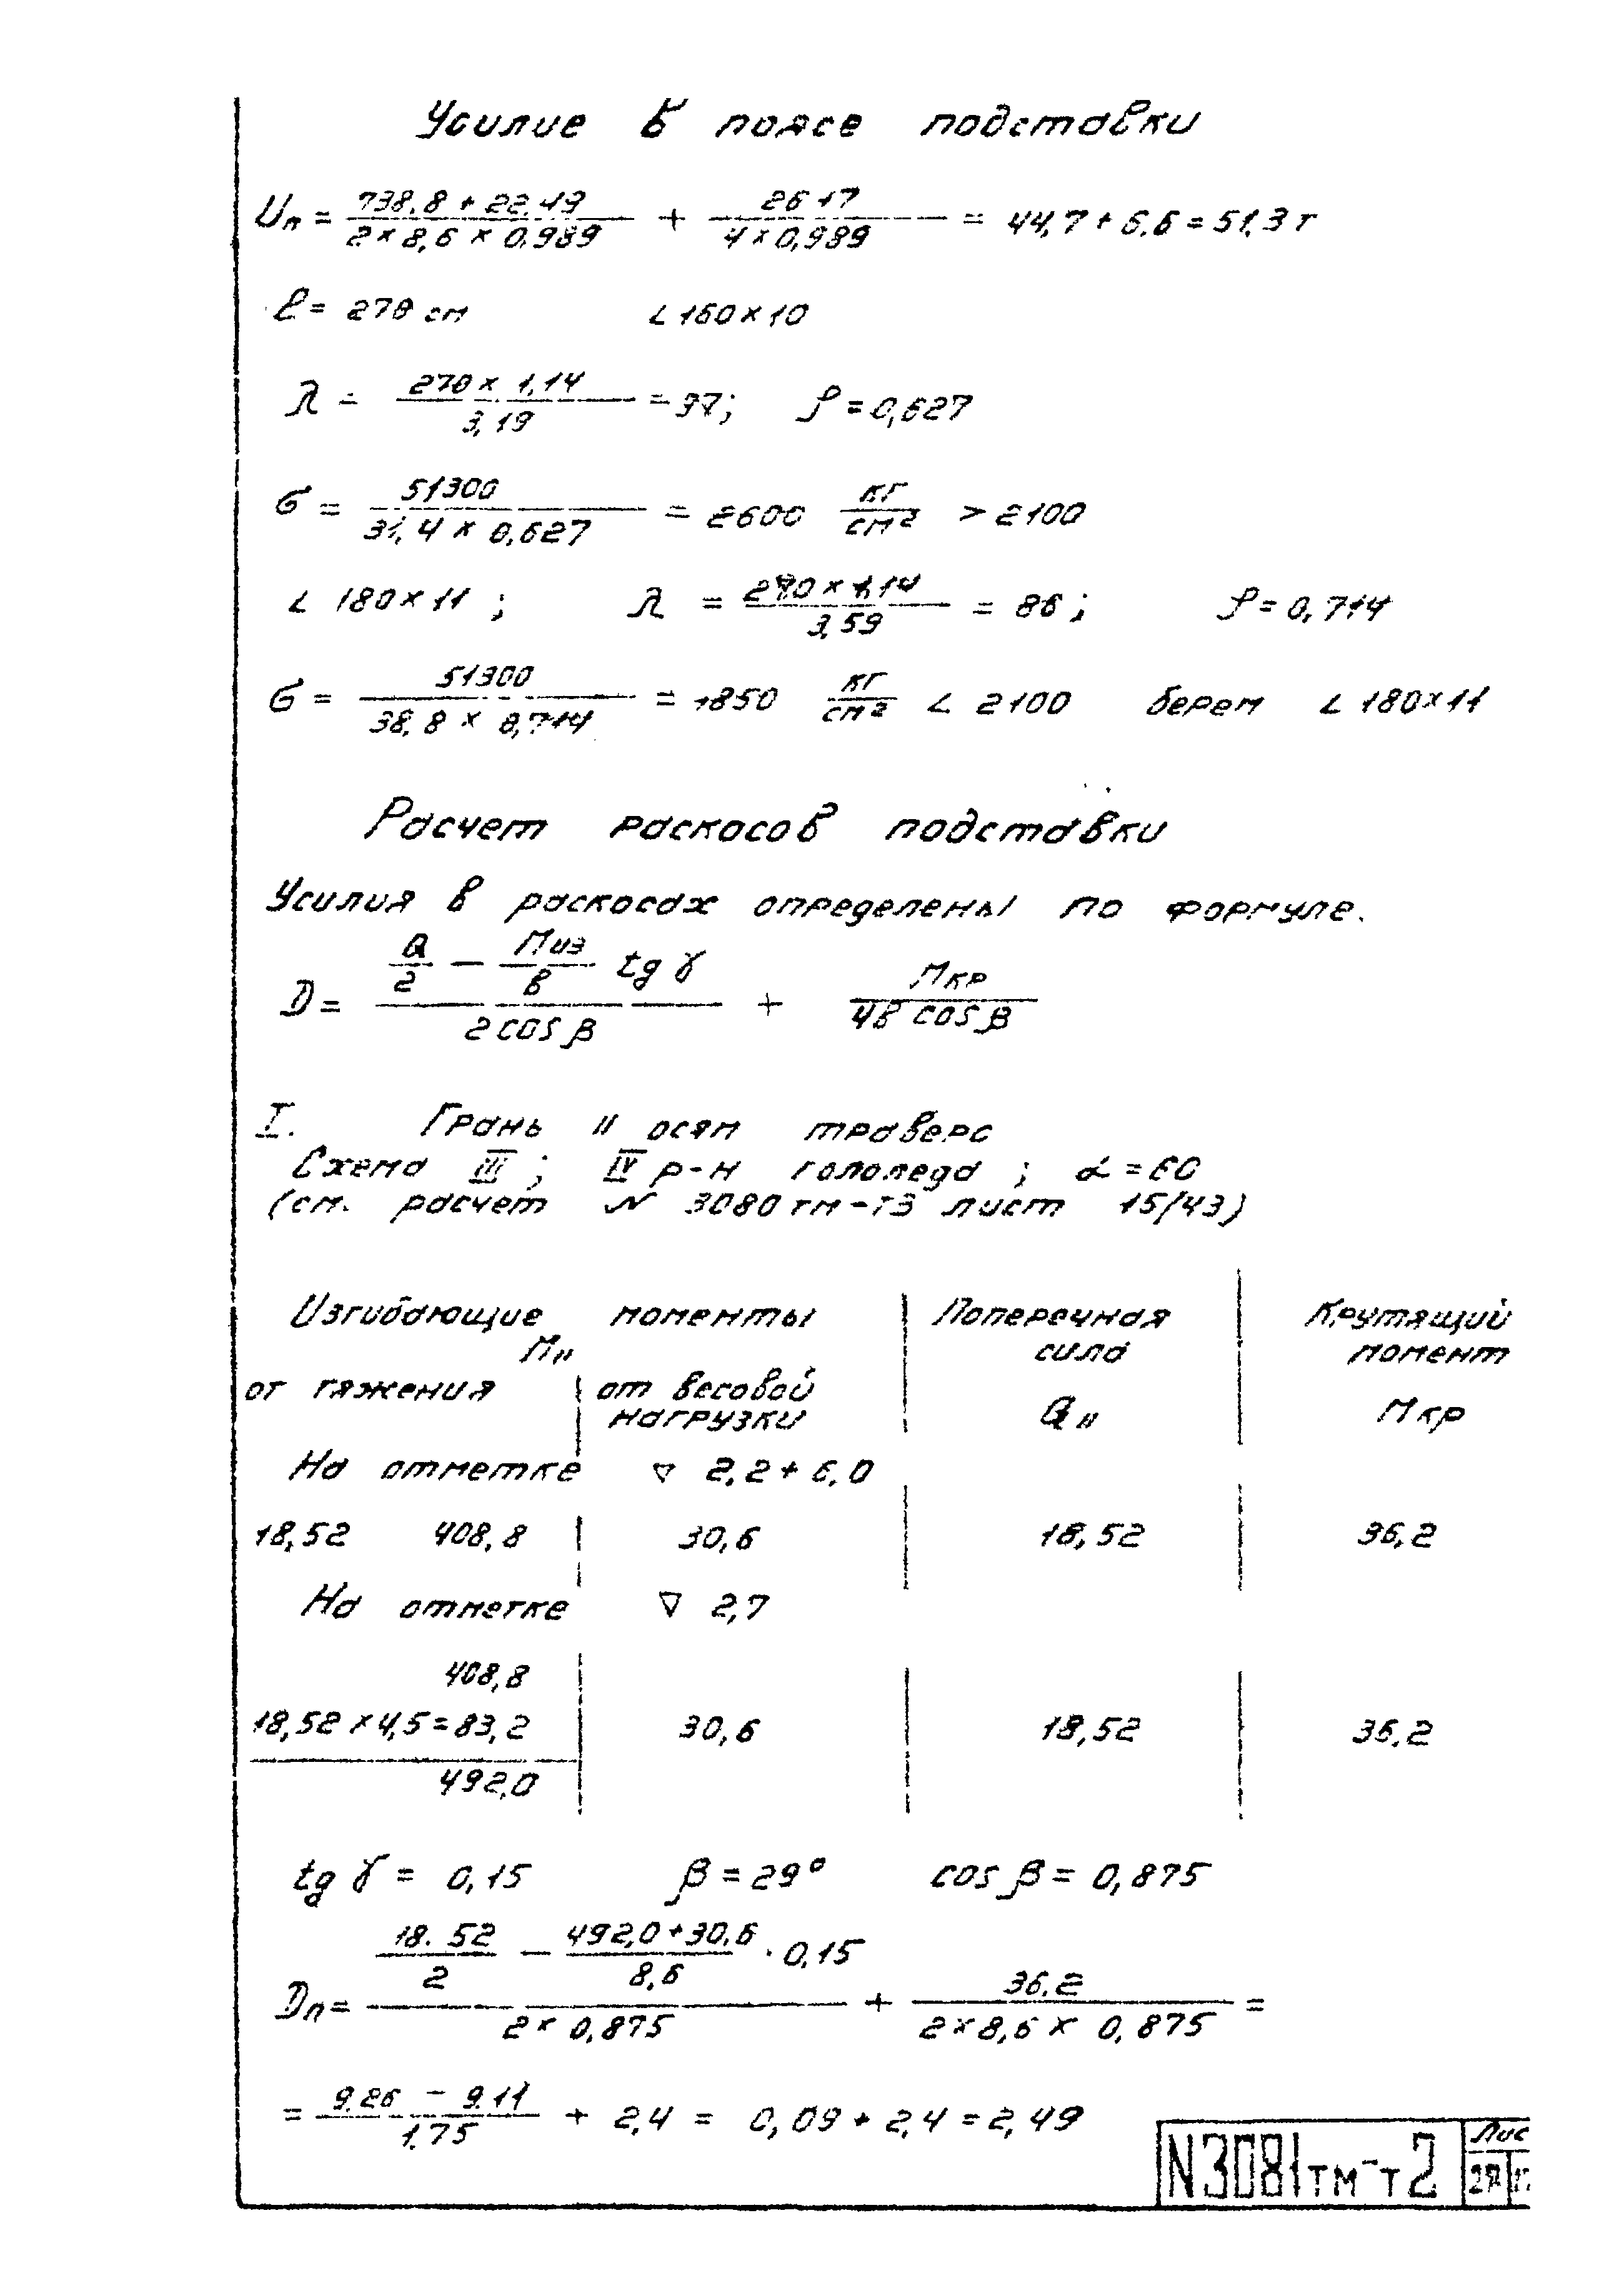 Усилие в поясе подставки
Uп = (738,8 + 22,19) / (2 × 8,6 × 0,989) + 26,17 / (4 × 0,989) = 44,7 + 6,6 = 51,3 т
ℓ = 270 см ∟160×10
λ = (270 × 1,14) / 3,19 = 97; φ = 0,627
σ = 51300 / (31,4 × 0,627) = 2600 кг/см² > 2100
∟180×11; λ = (270 × 1,14) / 3,59 = 86; φ = 0,714
σ = 51300 / (38,8 × 0,714) = 1850 кг/см² < 2100 берем ∟180×11
Расчет раскосов подставки
Усилия в раскосах определены по формуле.
D = (Q/2 − Mиз/в tg γ) / (2 cos β) + Мкр / (4в cos β)
I. Грань " осям траверс
Схема III; IV р-н гололеда; α = 60
(см. расчет N 3080тм-т3 лист 15/43)
Изгибающие моменты Поперечная Крутящий
М" сила момент
от тяжения от весовой
нагрузки Q" Мкр
На отметке ▽ 2,2 + 6,0
18,52 408,8 30,6 18,52 36,2
На отметке ▽ 2,7
408,8
18,52 × 4,5 = 83,2 30,6 18,52 36,2
492,0
tg γ = 0,15 β = 29° cos β = 0,875
Dп = (18.52/2 − (492,0 + 30,6)/8,6 · 0,15) / (2 × 0,875) + 36,2 / (2 × 8,6 × 0,875) =
= (9.26 − 9.11) / 1.75 + 2,4 = 0,09 + 2,4 = 2,49
N3081тм-т2